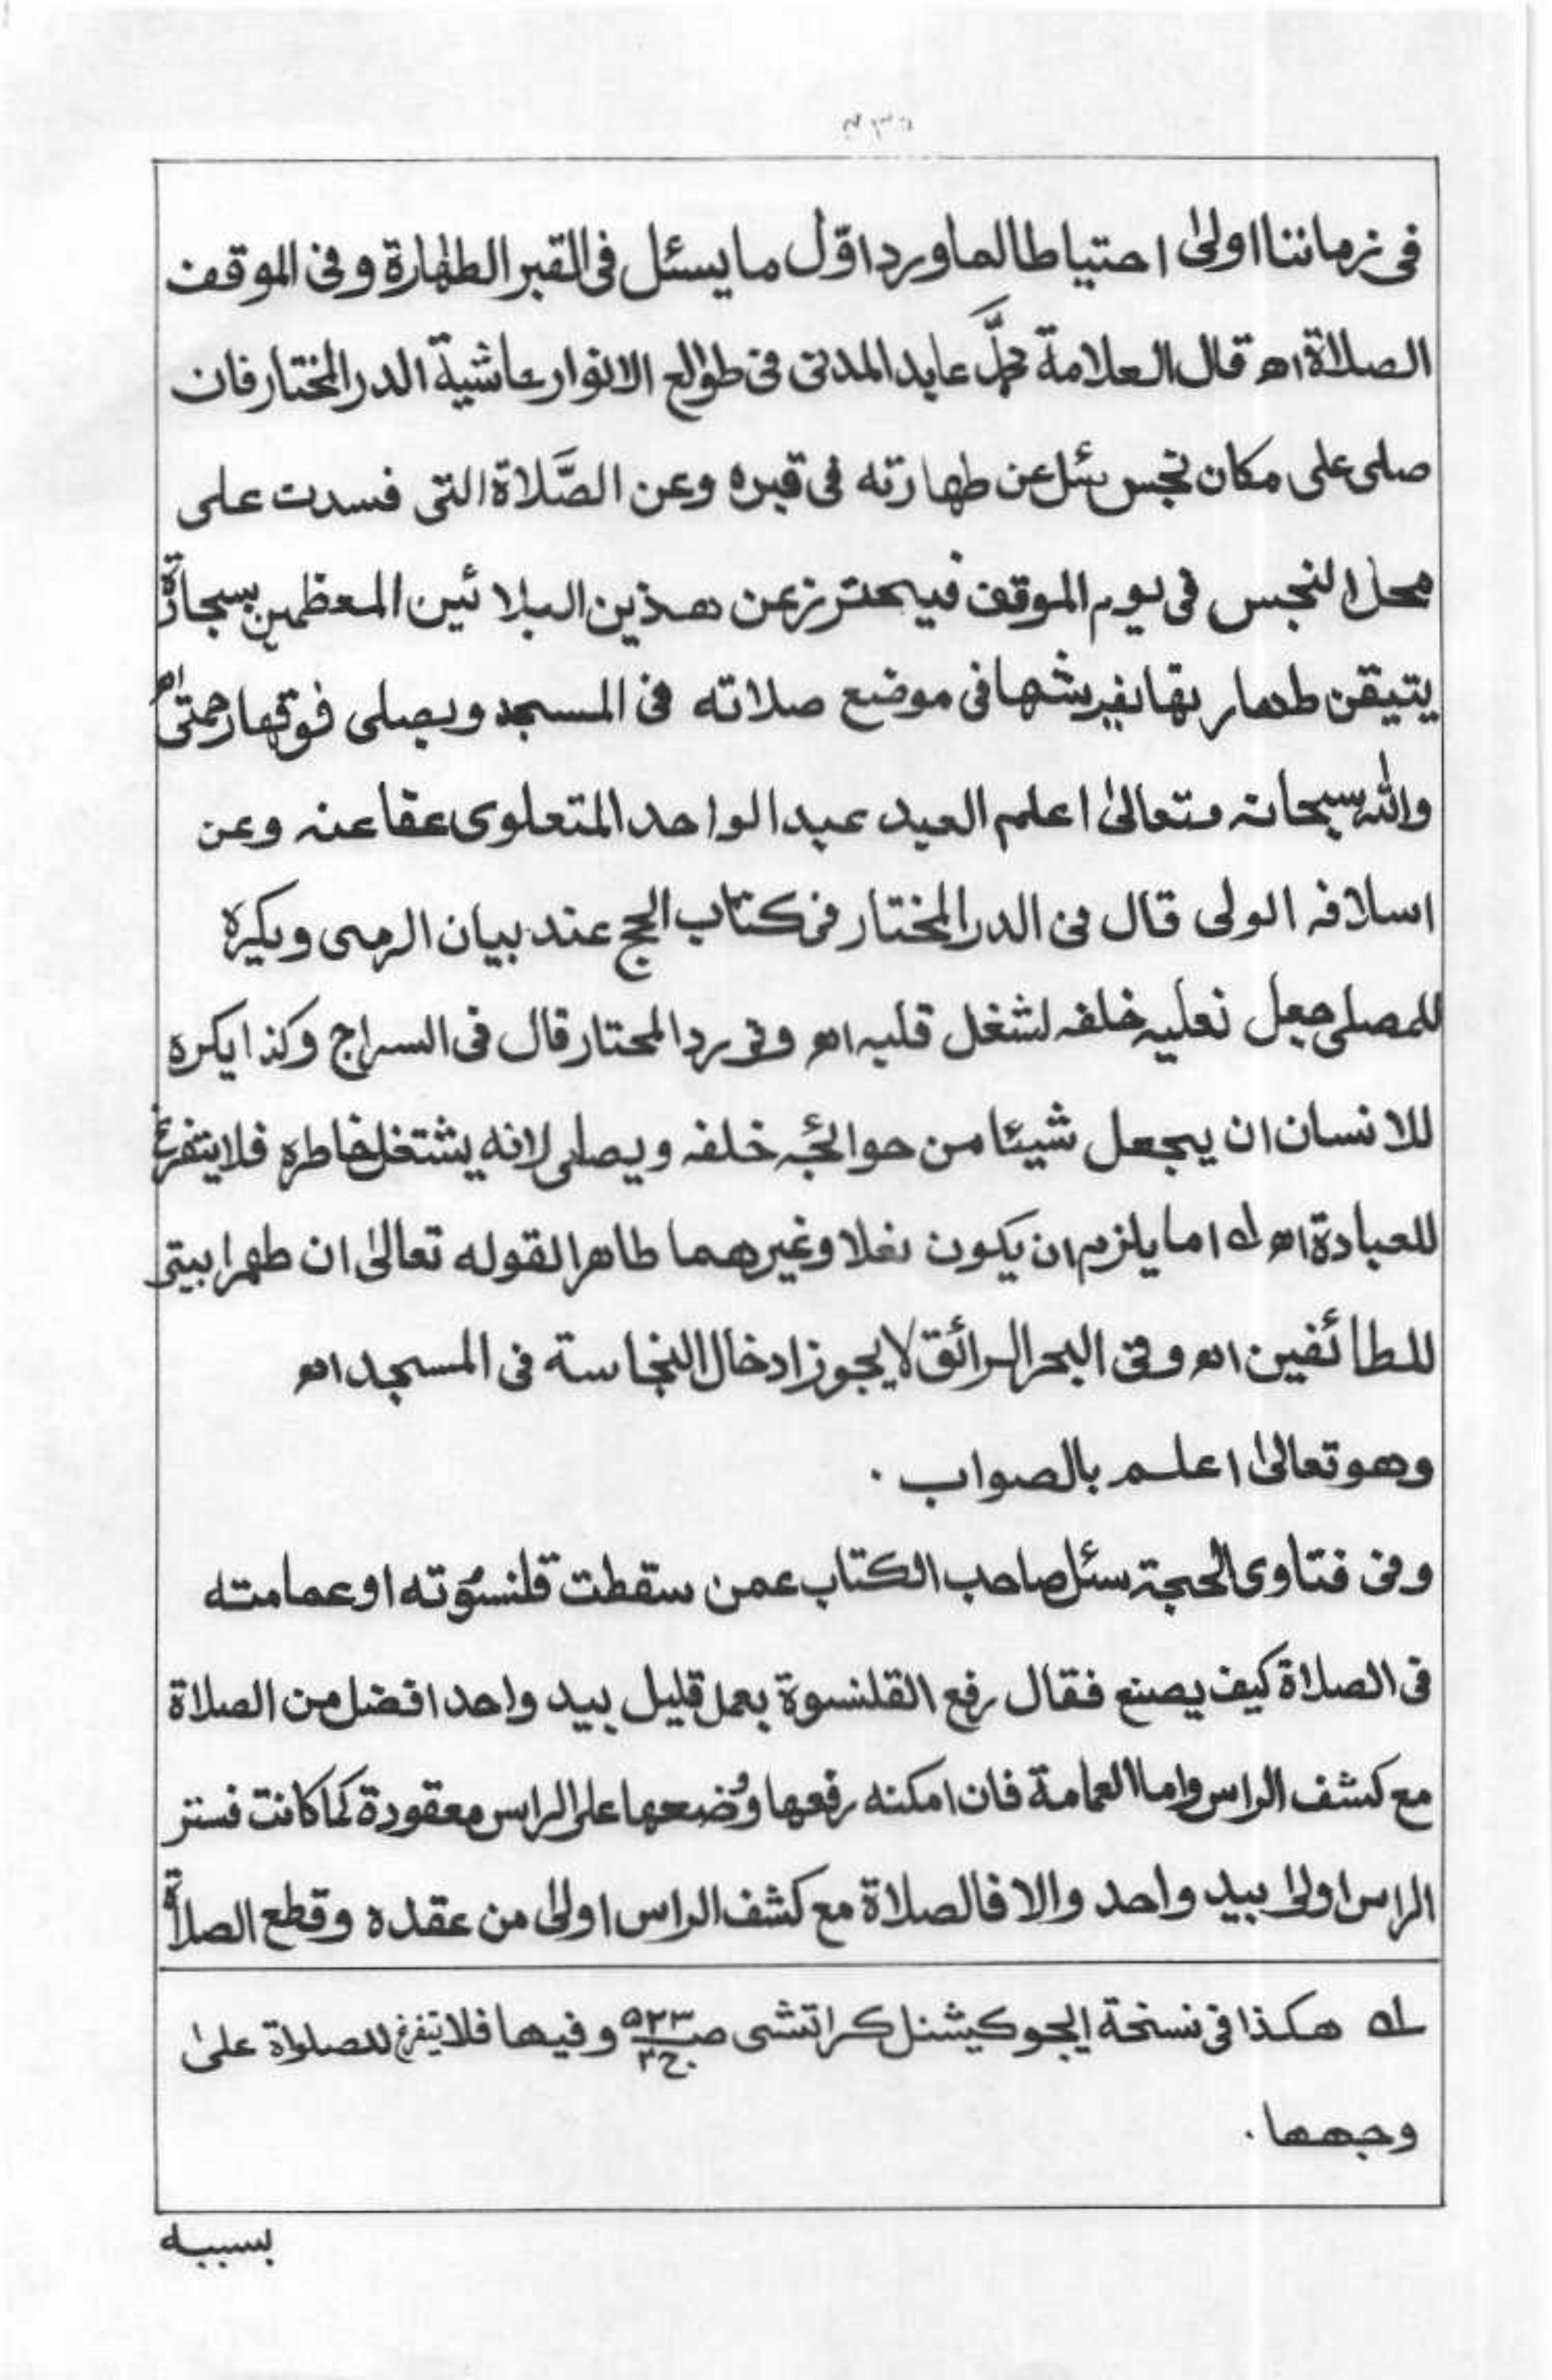 فى زماننا اولىٰ احتياطا لما ورد اوّل ما يسئل فى القبر الطهارة و فى الموقف
الصلاة اھ قال العلامة محمَّد عابد المدنى فى طوالع الانوار حاشية الدر المختار فان
صلى على مكان نجس سئل عن طهارته فى قبره وعن الصَّلاة التى فسدت على
محل النجس فى يوم الموقف فيحترز عن هذين البلائين المعظمين بسجادة
يتيقن طهارتها يفرشها فى موضع صلاته فى المسجد ويصلى فوقها رحمتى اھ
والله سبحانه وتعالىٰ اعلم العبد عبد الواحد المتعلوى عفا عنه وعن
اسلافه الولى قال فى الدر المختار فى كتاب الحج عند بيان الرمى ويكره
للمصلى جعل نعليه خلفه لشغل قلبه اھ وفى رد المحتار قال فى السراج وكذا يكره
للانسان ان يجعل شيئا من حوائجه خلفه ويصلى لانه يشتغل خاطره فلا يتفرغ
للعبادة اھ لـه اما يلزم ان يكون نعلا وغيرهما طاهرا لقوله تعالىٰ ان طهرا بيتى
للطائفين اھ وفى البحر الرائق لا يجوز ادخال النجاسة فى المسجد اھ
وهو تعالىٰ اعلم بالصواب .
وفى فتاوى الحجة سئل صاحب الكتاب عمن سقطت قلنسوته او عمامته
فى الصلاة كيف يصنع فقال رفع القلنسوة بعمل قليل بيد واحد افضل من الصلاة
مع كشف الراس واما العمامة فان امكنه رفعها وُضعها على الراس معقودة كما كانت فستر
الراس اولىٰ بيد واحد والا فالصلاة مع كشف الراس اولىٰ من عقده وقطع الصلاة
لـه هكذا فى نسخة ايجوكيشنل كراتشى صـ ۵۲۳ ج۲ و فيها فلا يتفرغ للصلواة علىٰ
وجهها .
بسببه